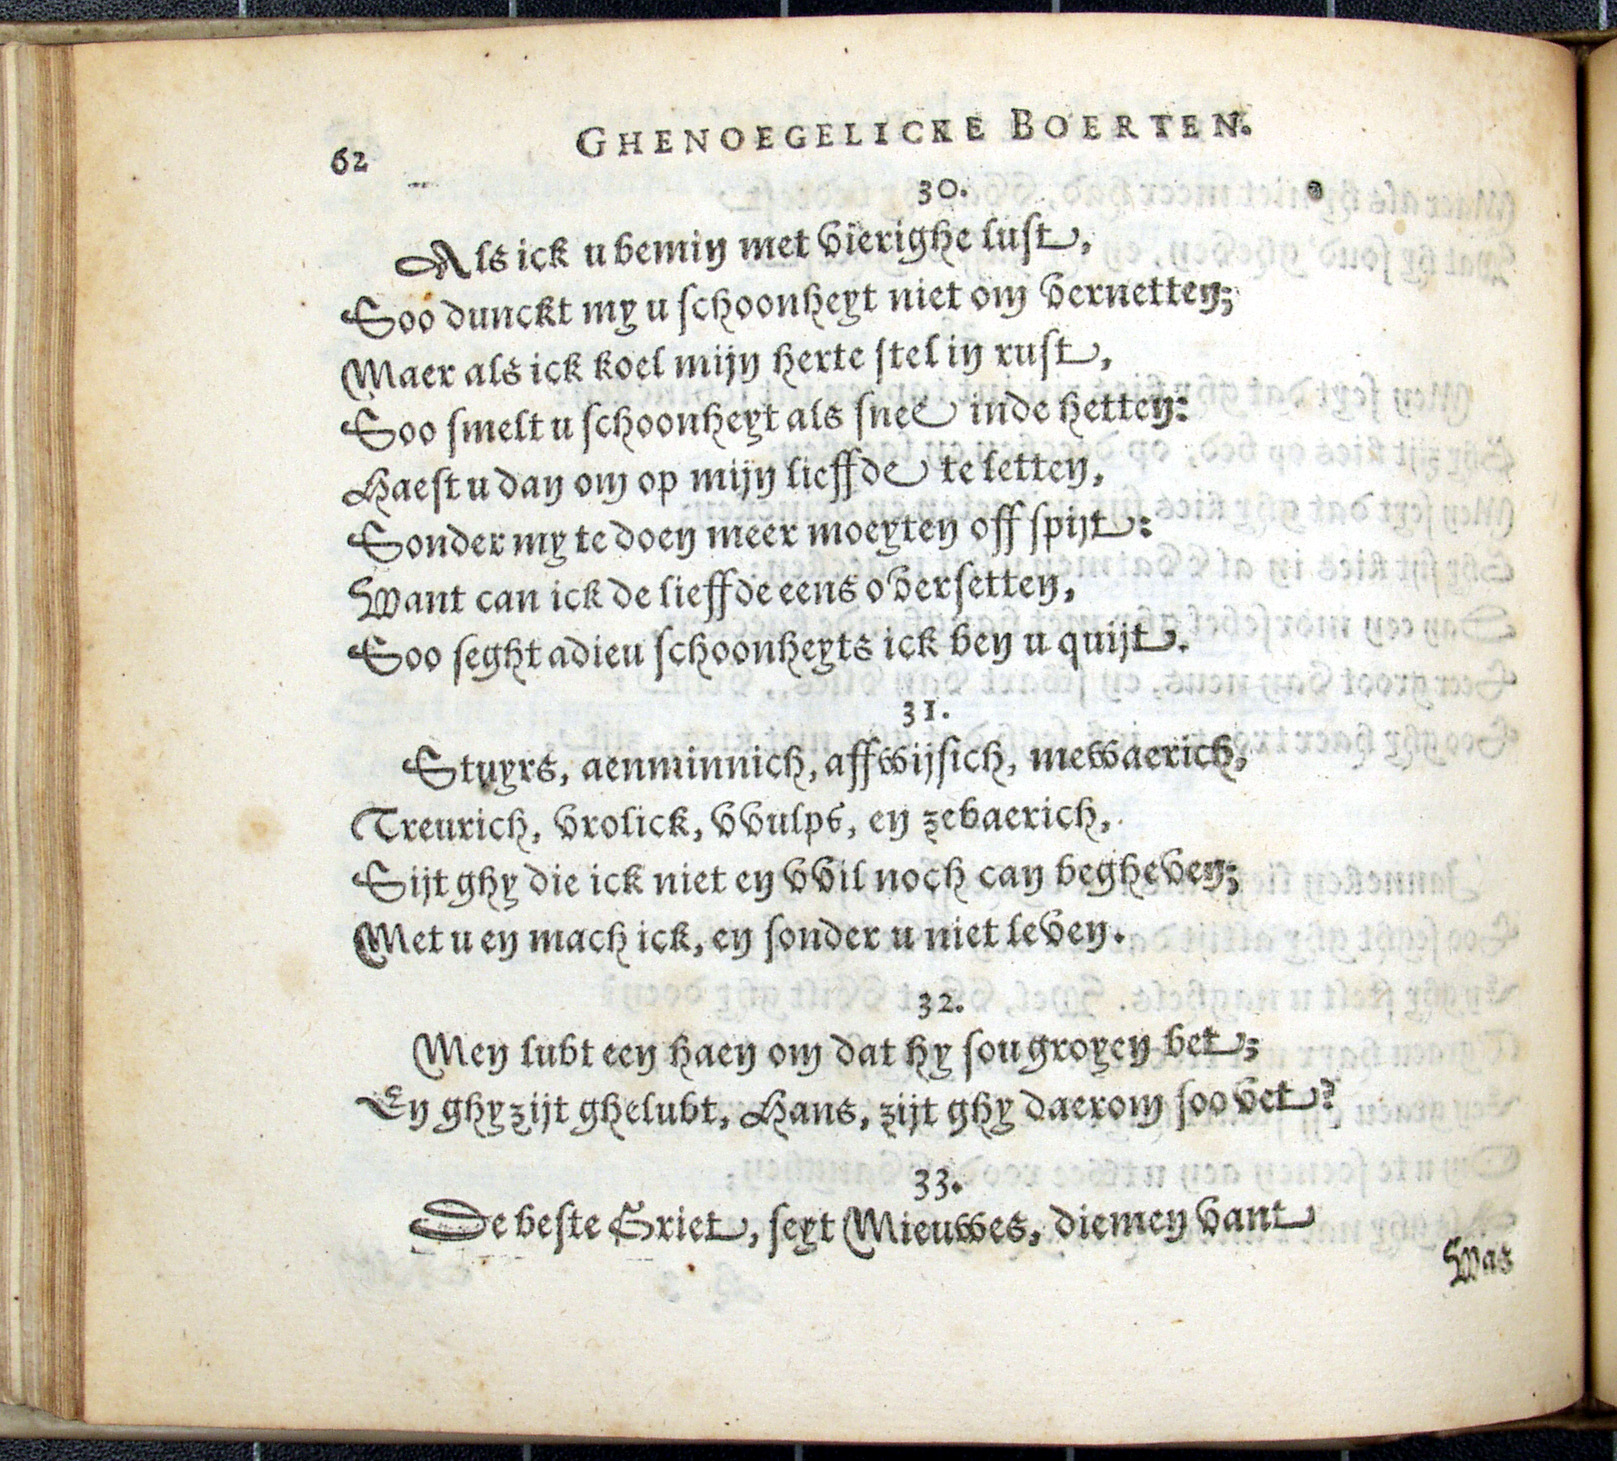 62 GHENOEGELICKE BOERTEN.
30.
Als ick u bemin met vierighe lust,
Soo dunckt my u schoonheyt niet om vernetten;
Maer als ick koel mijn herte stel in rust,
Soo smelt u schoonheyt als snee inde hetten:
Haest u dan om op mijn lieffde te letten,
Sonder my te doen meer moeyten off spijt:
Want can ick de lieffde eens oversetten,
Soo seght adieu schoonheyts ick ben u quijt.
31.
Stuyrs, aenminnich, affwijsich, mewaerich,
Treurich, vrolick, vvulps, en zebaerich,
Sijt ghy die ick niet en vvil noch can begheven;
Met u en mach ick, en sonder u niet leven.
32.
Men lubt een haen om dat hy sou groyen bet;
En ghy zijt ghelubt, Hans, zijt ghy daerom soo vet?
33.
De beste Griet, seyt Mieuwes, diemen vant
Was